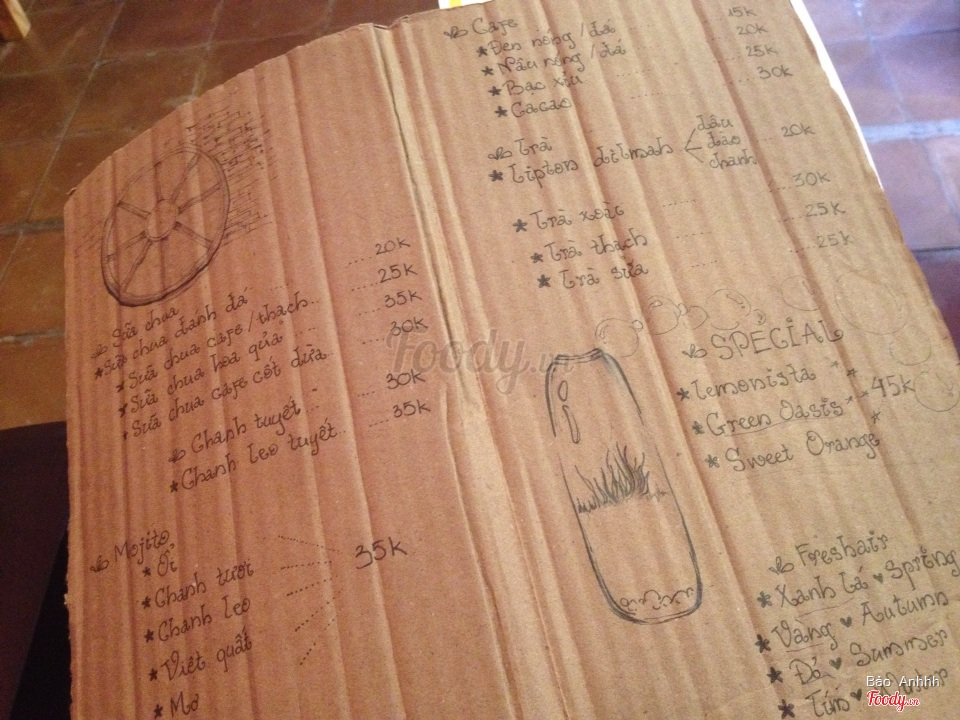 Sữa chua
Sữa chua đánh đá 20k
Sữa chua cafe/thạch 25k
Sữa chua hoa quả 35k
Sữa chua cafe cốt dừa 30k
Chanh tuyết 30k
Chanh leo tuyết 35k
Mojito
Ổi
Chanh tươi
Chanh leo 35k
Việt quất
Mơ
Cafe
Đen nóng/đá 15k
Nâu nóng/đá 20k
Bạc xỉu 25k
Cacao 30k
Trà
Lipton dilmah dâu đào chanh 20k
Trà xoài 30k
Trà thạch 25k
Trà sữa 25k
SPECIAL
Lemonista
Green Oasis 45k
Sweet Orange
Freshair
Xanh lá Spring
Vàng Autumn
Đỏ Summer
Tím
Foody.vn
Bảo Anhhh
Foody.vn